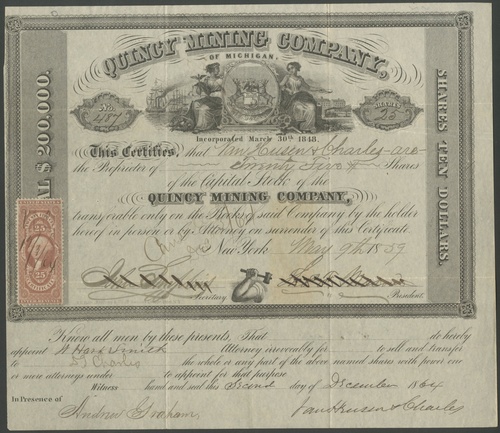 QUINCY MINING COMPANY,
OF MICHIGAN,
No.
487
SHARES
25
CAPITAL $200,000.
SHARES TEN DOLLARS.
Incorporated March 30th 1848.
This Certifies, that Van Heusen & Charles are
the Proprietor of Twenty Five Shares
of the Capital Stock of the
QUINCY MINING COMPANY,
transferable only on the Books of said Company by the holder
hereof in person or by Attorney on surrender of this Certificate.
New York May 9th 1859
Secretary
President.
25
25
Know all men by these presents, That do hereby
appoint Attorney irrevocably for to sell and transfer
to the whole or any part of the above named shares with power one
or more attorneys under to appoint for that purpose
Witness hand and seal this Second day of December 1864
In Presence of
Andrew Graham
Van Heusen & Charles